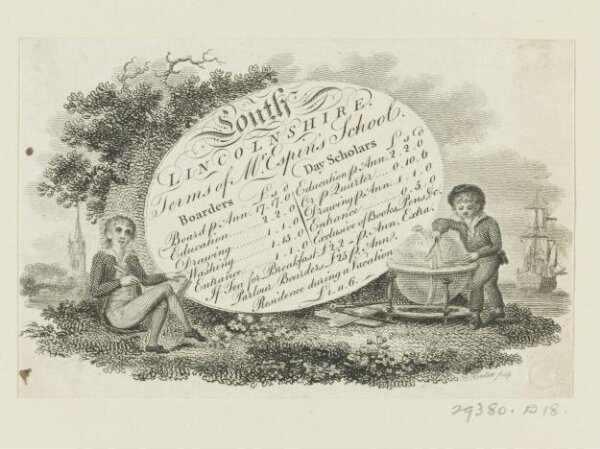 South
LINCOLNSHIRE.
Terms of Mr. Espin's School.
Boarders £ s d
Board p. Ann. 7. 7. 0
Education 2. 2. 0
Drawing 1. 1. 0
Washing 1. 15. 0
Entrance 1. 1. 0
Day Scholars £ s d
Education p. Ann. 2. 2. 0
Or p. Quarter 0. 10. 6
Drawing p. Ann. 1. 1. 0
Entrance 0. 5. 0
Exclusive of Books, Pens, &c.
If Tea for Breakfast £2.2 p. Ann. Extra.
Parlour Boarders £25 p. Ann.
Residence during a Vacation
£1. 11. 6.
sculp
29380. D 18.